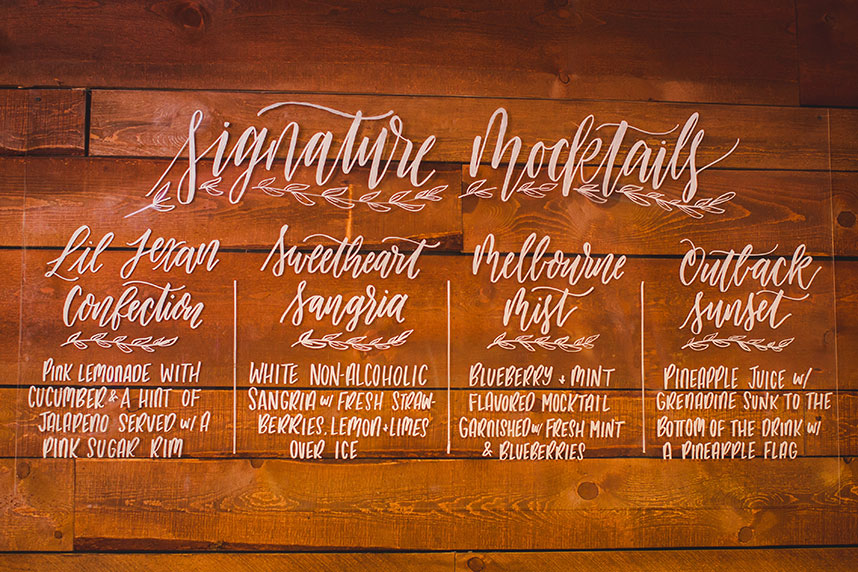 Signature Mocktails
Lil Texan
Confection
PINK LEMONADE WITH
CUCUMBER & A HINT OF
JALAPENO SERVED W/ A
PINK SUGAR RIM
Sweetheart
Sangria
WHITE NON-ALCOHOLIC
SANGRIA W/ FRESH STRAW-
BERRIES, LEMON + LIMES
OVER ICE
Melbourne
Mist
BLUEBERRY + MINT
FLAVORED MOCKTAIL
GARNISHED W/ FRESH MINT
& BLUEBERRIES
Outback
Sunset
PINEAPPLE JUICE W/
GRENADINE SUNK TO THE
BOTTOM OF THE DRINK W/
A PINEAPPLE FLAG